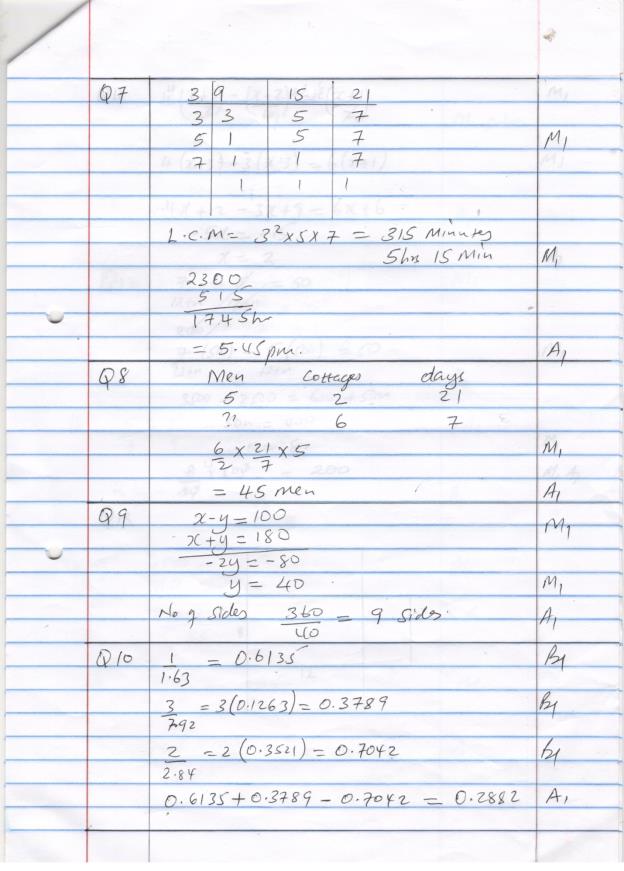 Q7 3 9 15 21
3 3 5 7
5 1 5 7 M1
7 1 1 7
1 1 1
L.C.M = 3²x5x7 = 315 Minutes
5hrs 15 Min M1
2300
515
1745hr
= 5.45pm. A1
Q8 Men Cottages days
5 2 21
?? 6 7
6/2 x 21/7 x 5 M1
= 45 men A1
Q9 x-y=100 M1
x+y=180
-2y=-80
y = 40 M1
No of sides 360/40 = 9 sides. A1
Q10 1/1.63 = 0.6135 B1
3/7.92 = 3(0.1263)=0.3789 B1
2/2.84 = 2(0.3521)=0.7042 B1
0.6135+0.3789-0.7042=0.2882 A1